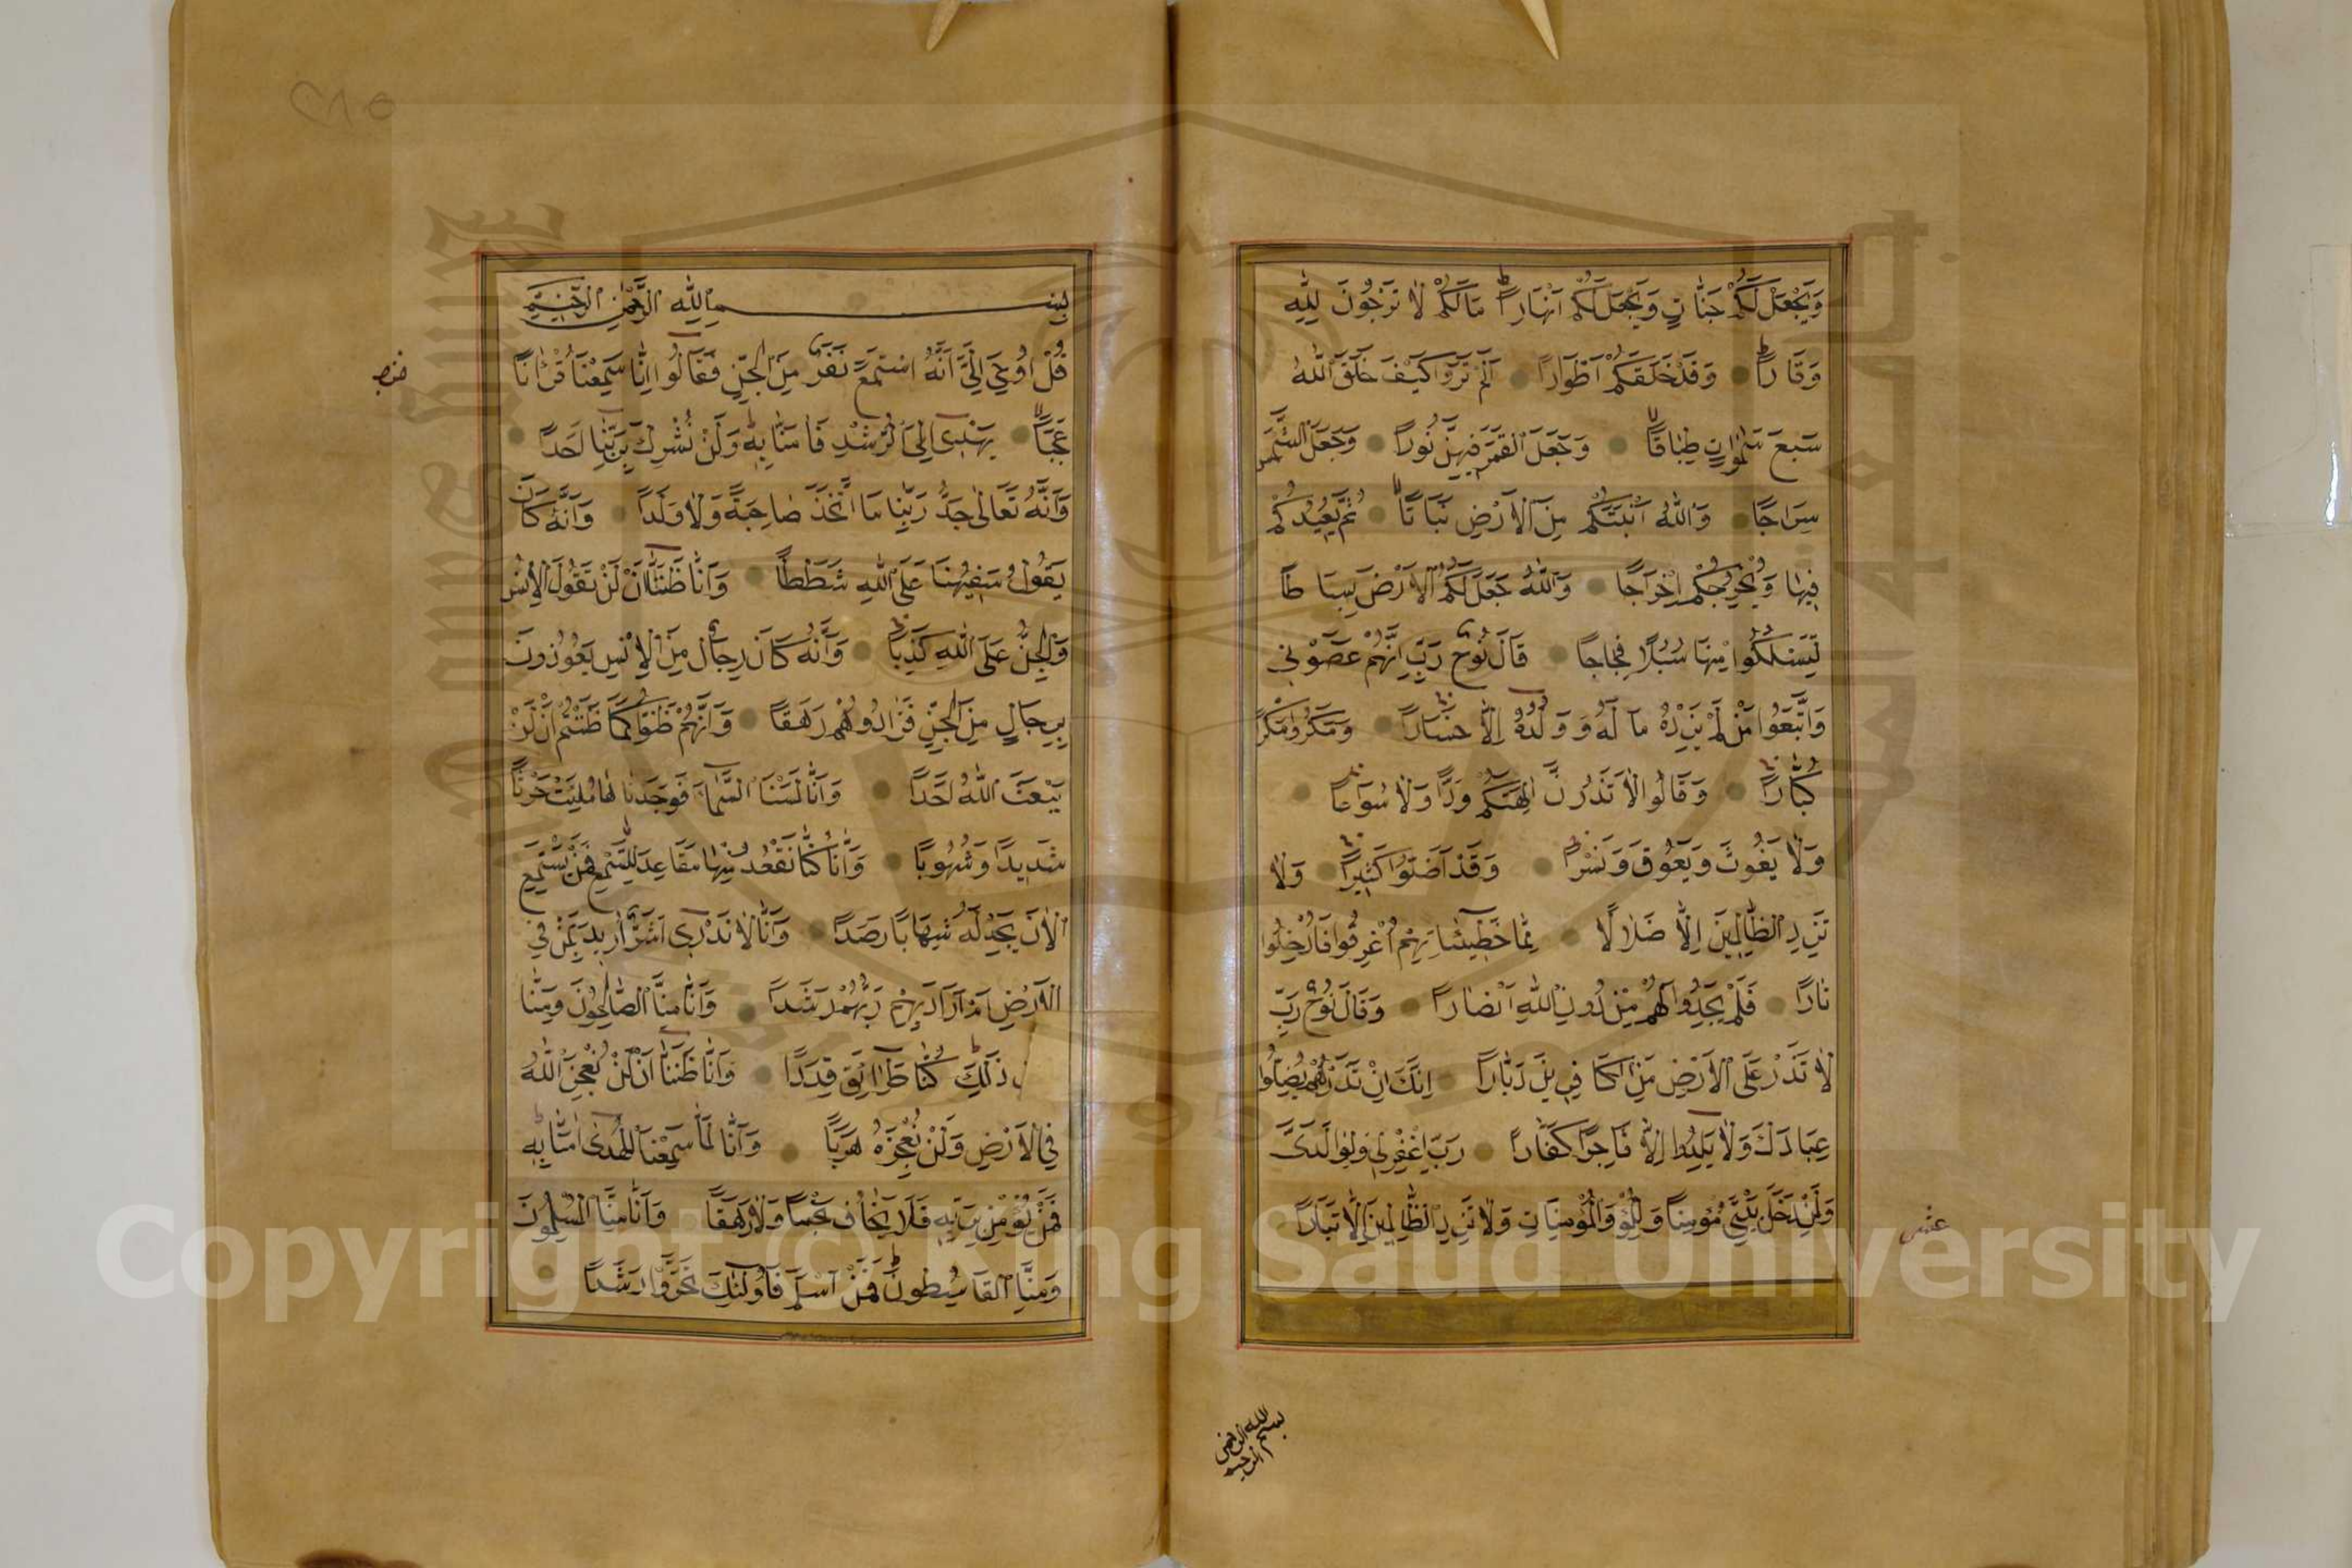 وَيَجْعَلْ لَكُمْ جَنَّاتٍ وَيَجْعَلْ لَكُمْ اَنْهَاراً مَا لَكُمْ لَا تَرْجُونَ لِلّٰهِ
وَقَاراً وَقَدْ خَلَقَكُمْ اَطْوَاراً اَلَمْ تَرَوْا كَيْفَ خَلَقَ اللّٰهُ
سَبْعَ سَمٰوَاتٍ طِبَاقاً وَجَعَلَ الْقَمَرَ فِيهِنَّ نُوراً وَجَعَلَ الشَّمْسَ
سِرَاجًا وَاللّٰهُ اَنْبَتَكُمْ مِنَ الْاَرْضِ نَبَاتًا ثُمَّ يُعِيدُكُمْ
فِيهَا وَيُخْرِجُكُمْ اِخْرَاجًا وَاللّٰهُ جَعَلَ لَكُمُ الْاَرْضَ بِسَاطًا
لِتَسْلُكُوا مِنْهَا سُبُلًا فِجَاجًا قَالَ نُوحٌ رَبِّ اِنَّهُمْ عَصَوْنِي
وَاتَّبَعُوا مَنْ لَمْ يَزِدْهُ مَالُهُ وَوَلَدُهُ اِلَّا خَسَاراً وَمَكَرُوا مَكْرًا
كُبَّاراً وَقَالُوا لَا تَذَرُنَّ اٰلِهَتَكُمْ وَلَا تَذَرُنَّ وَدًّا وَلَا سُوَاعًا
وَلَا يَغُوثَ وَيَعُوقَ وَنَسْراً وَقَدْ اَضَلُّوا كَثِيراً وَلَا
تَزِدِ الظَّالِمِينَ اِلَّا ضَلَالًا مِمَّا خَطِيئَاتِهِمْ اُغْرِقُوا فَاُدْخِلُوا
نَارًا فَلَمْ يَجِدُوا لَهُمْ مِنْ دُونِ اللّٰهِ اَنْصَارًا وَقَالَ نُوحٌ رَبِّ
لَا تَذَرْ عَلَى الْاَرْضِ مِنَ الْكَافِرِينَ دَيَّارًا اِنَّكَ اِنْ تَذَرْهُمْ يُضِلُّوا
عِبَادَكَ وَلَا يَلِدُوا اِلَّا فَاجِرًا كَفَّارًا رَبِّ اغْفِرْ لِي وَلِوَالِدَيَّ
وَلِمَنْ دَخَلَ بَيْتِيَ مُؤْمِنًا وَلِلْمُؤْمِنِينَ وَالْمُؤْمِنَاتِ وَلَا تَزِدِ الظَّالِمِينَ اِلَّا تَبَارًا
عشر
بسم الله الرحمن الرحيم
٢٨٥
بِسْمِ اللّٰهِ الرَّحْمٰنِ الرَّحِيمِ
قُلْ اُوحِيَ اِلَيَّ اَنَّهُ اسْتَمَعَ نَفَرٌ مِنَ الْجِنِّ فَقَالُوا اِنَّا سَمِعْنَا قُرْاٰنًا
عَجَبًا يَهْدِي اِلَى الرُّشْدِ فَاٰمَنَّا بِهِ وَلَنْ نُشْرِكَ بِرَبِّنَا اَحَدًا
وَاَنَّهُ تَعَالٰى جَدُّ رَبِّنَا مَا اتَّخَذَ صَاحِبَةً وَلَا وَلَدًا وَاَنَّهُ كَانَ
يَقُولُ سَفِيهُنَا عَلَى اللّٰهِ شَطَطًا وَاَنَّا ظَنَنَّا اَنْ لَنْ تَقُولَ الْاِنْسُ
وَالْجِنُّ عَلَى اللّٰهِ كَذِبًا وَاَنَّهُ كَانَ رِجَالٌ مِنَ الْاِنْسِ يَعُوذُونَ
بِرِجَالٍ مِنَ الْجِنِّ فَزَادُوهُمْ رَهَقًا وَاَنَّهُمْ ظَنُّوا كَمَا ظَنَنْتُمْ اَنْ لَنْ
يَبْعَثَ اللّٰهُ اَحَدًا وَاَنَّا لَمَسْنَا السَّمَاءَ فَوَجَدْنَاهَا مُلِئَتْ حَرَسًا
شَدِيدًا وَشُهُبًا وَاَنَّا كُنَّا نَقْعُدُ مِنْهَا مَقَاعِدَ لِلسَّمْعِ فَمَنْ يَسْتَمِعِ
الْاٰنَ يَجِدْ لَهُ شِهَابًا رَصَدًا وَاَنَّا لَا نَدْرِي اَشَرٌّ اُرِيدَ بِمَنْ فِي
الْاَرْضِ اَمْ اَرَادَ بِهِمْ رَبُّهُمْ رَشَدًا وَاَنَّا مِنَّا الصَّالِحُونَ وَمِنَّا
ذٰلِكَ كُنَّا طَرَائِقَ قِدَدًا وَاَنَّا ظَنَنَّا اَنْ لَنْ نُعْجِزَ اللّٰهَ
فِي الْاَرْضِ وَلَنْ نُعْجِزَهُ هَرَبًا وَاَنَّا لَمَّا سَمِعْنَا الْهُدٰى اٰمَنَّا بِهِ
فَمَنْ يُؤْمِنْ بِرَبِّهِ فَلَا يَخَافُ بَخْسًا وَلَا رَهَقًا وَاَنَّا مِنَّا الْمُسْلِمُونَ
وَمِنَّا الْقَاسِطُونَ فَمَنْ اَسْلَمَ فَاُولٰئِكَ تَحَرَّوْا رَشَدًا
Copyright © King Saud University
1957